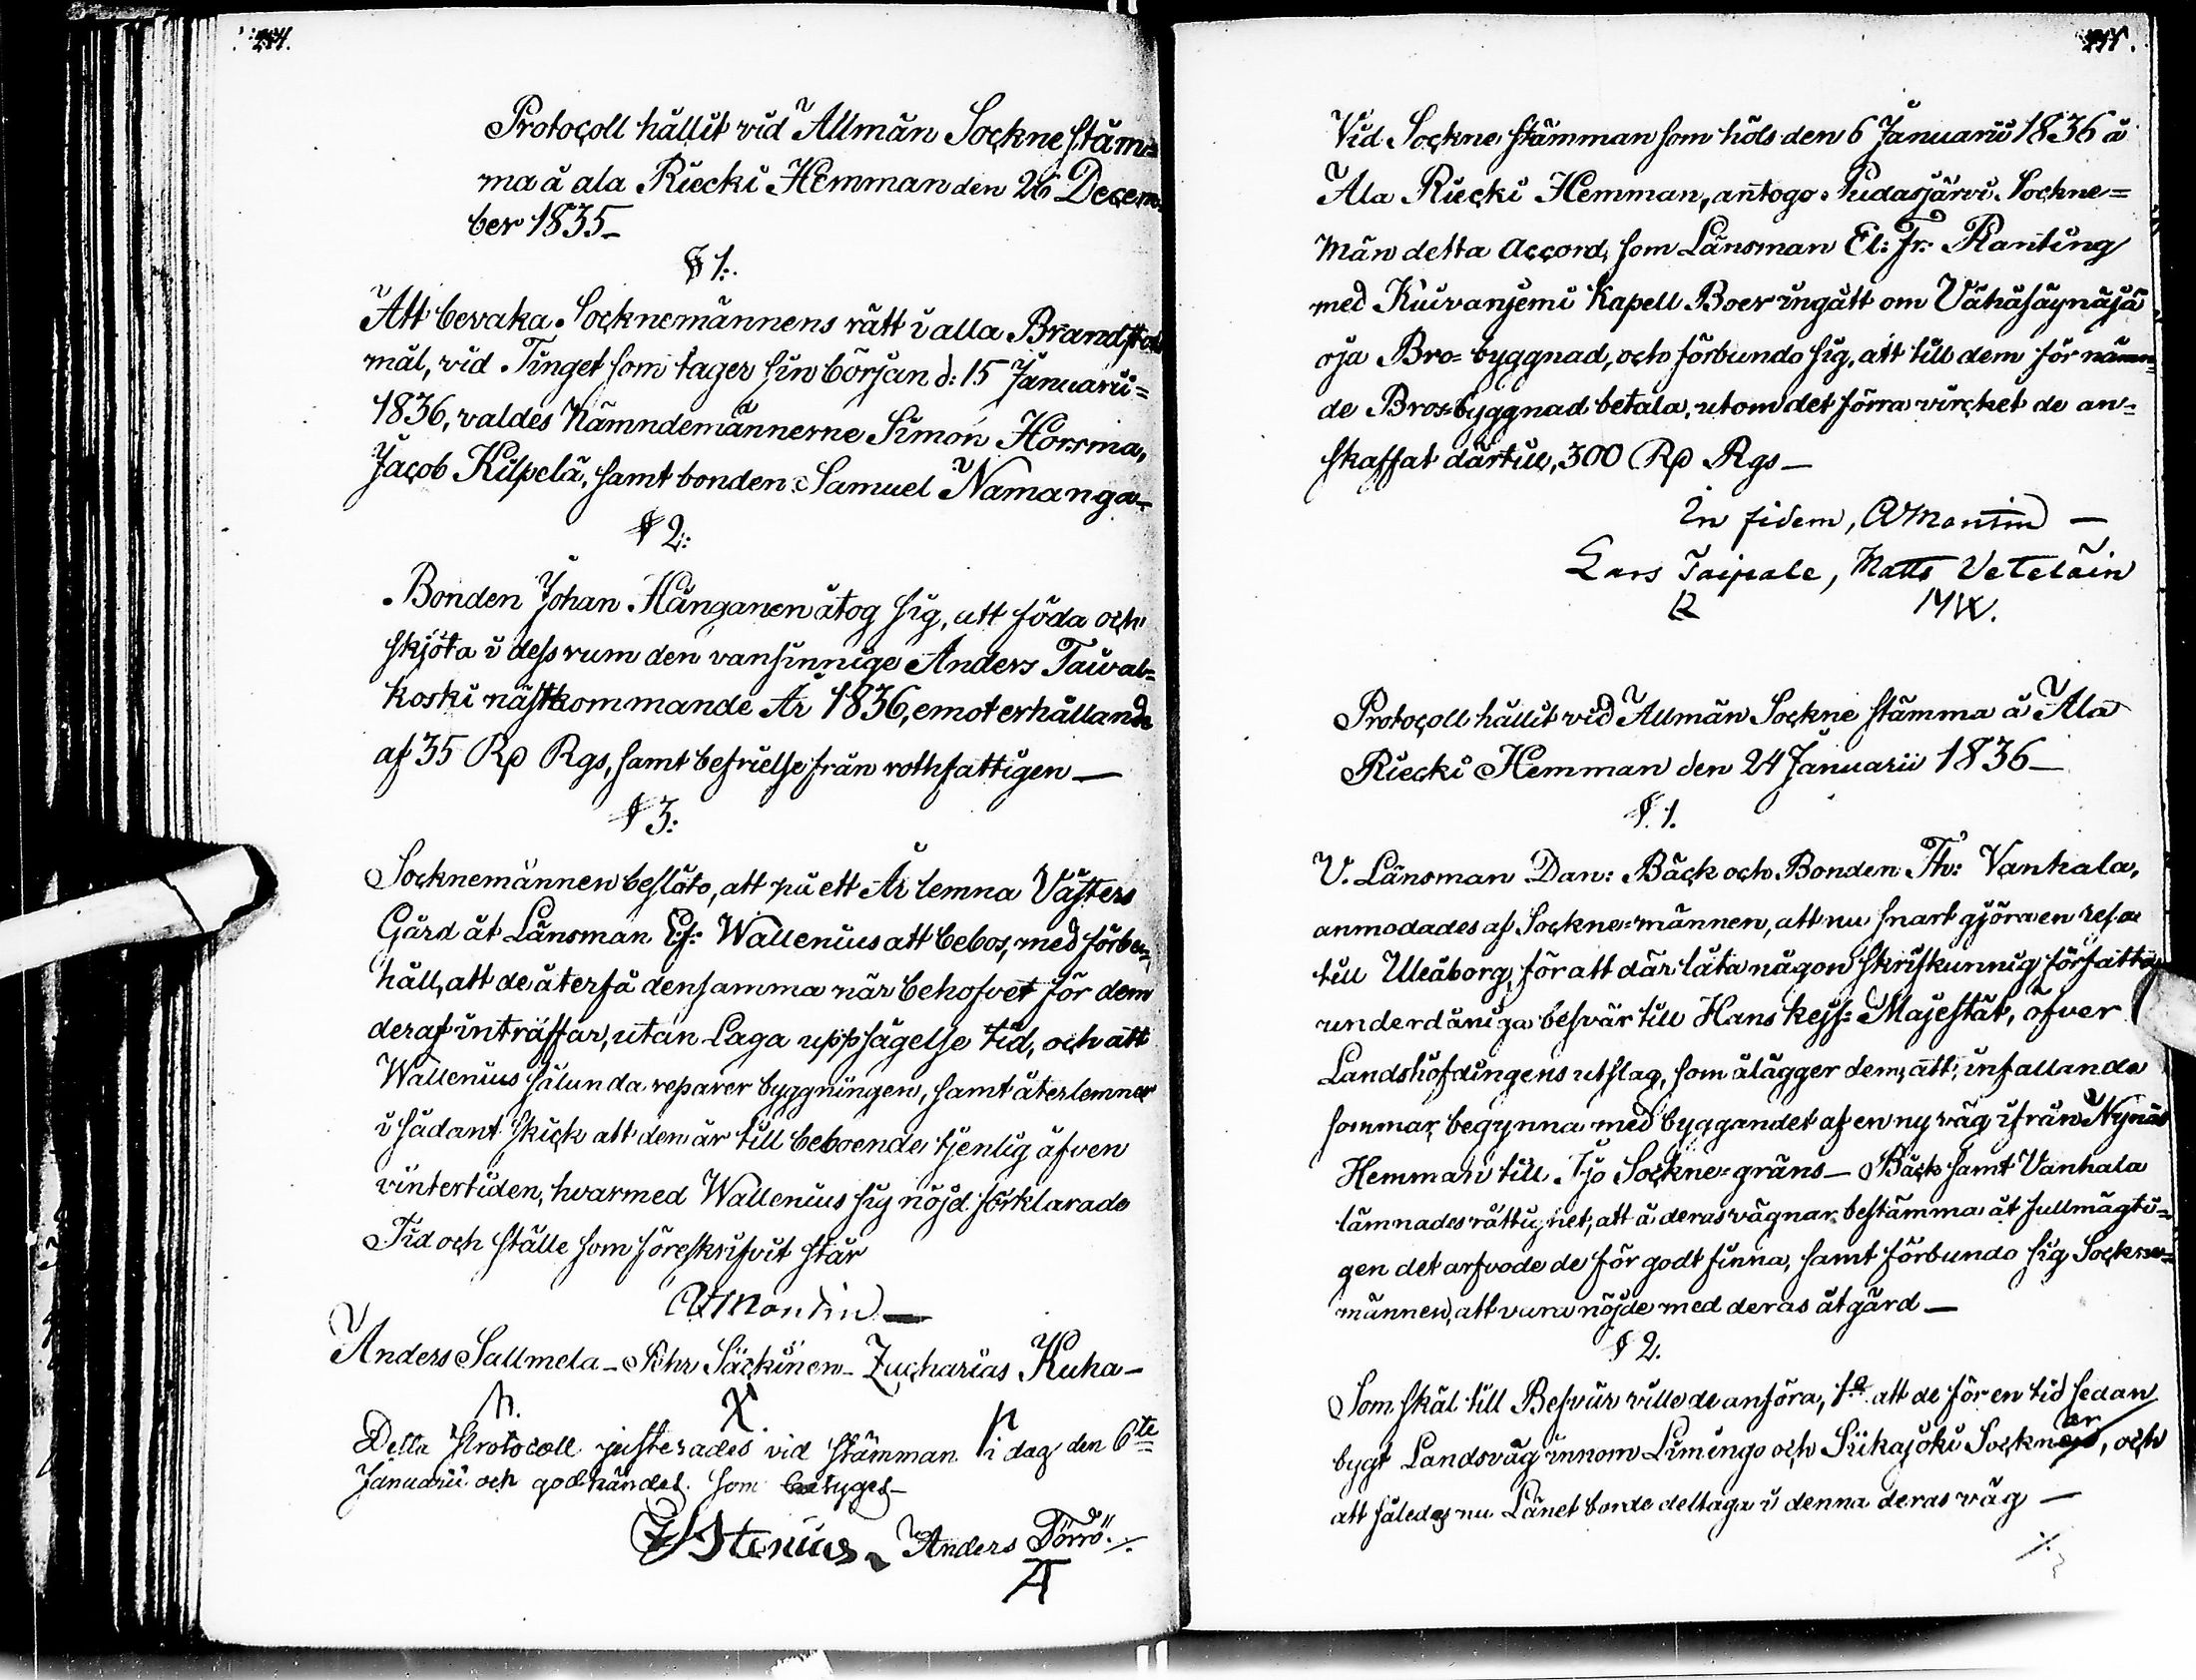 Protocoll hållit vid Allmän Sockne stäm=
ma å ala Riecki Hemman den 26 Decem=
ber 1835_
§ 1:.
Att bevaka Socknemännens rätt i alla Brandstods
mål, vid Tinget som tager sin början d: 15 Januarii=
1836, valdes Nämndemännerne Simon Horsma,
Jacob Kilpelä, samt bonden Samuel Namanga_
§ 2:
Bonden Johan Hänganen åtog sig, att föda och
skjöta i dess rum den vansinnige Anders Taival=
koski nästkommande År 1836, emot erhållande
af 35 Rp Rgs, samt befrielse från rothfattigen_
§ 3:
Socknemännen beslöto, att på ett År lemna Västers
Gård åt Länsman Wallenius att bebos, med förbe=
håll, att de återfå densamma när behofvet för dem
deraf inträffar, utan Laga uppsägelse tid, och att
Wallenius sålunda reparer byggningen, samt återlemnar
i sådant skick att den är till beboende tjenlig äfven
vintertiden, hvarmed Wallenius sig nöjd förklarade
Tid och ställe som föreskrifvit står
A Montin_
Anders Sallmela_ Pehr Säckinen_ Zacharias Kuha_
Detta Protocoll justerades vid stämman i dag den 6te
Januarii och godkändes som betyges_
Stenius_ Anders Törrö./.
Vid Sockne stämman som höls den 6 Januarii 1836 å
Ala Riecki Hemman, antogo Pudasjärvi Sockne=
män detta Accord, som Länsman El: Fr: Planting
med Kuivaniemi Kapell Boer ingått om Vähäsäynäjä
oja Bro= byggnad, och förbundo sig, att till dem för nämn=
de Bro=byggnad betala, utom det förra vircket de an=
skaffat därtill, 300 Rp Rgs_
In fidem, A Montin _
Lars Taipale, Matts Veteläin
MW.
Protocoll hållit vid Allmän Sockne stämma å Ala
Riecki Hemman den 24 Januarii 1836_
§. 1.
V. Länsman Dan: Bäck och Bonden Th: Vanhala,
anmodades af Sockne=männen, att nu snart gjöra en resa
till Uleåborg, för att där låta någon skrifkunnig författa
underdåniga besvär till Hans Kejs: Majestät, öfver
Landshöfdingens utslag, som ålägger dem, att, infallande
sommar, begynna med byggandet af en ny väg ifrån Nynäs
Hemman till Ijo Sockne=gräns_ Bäck samt Vanhala
lämnades rättighet, att å deras vägnar bestämma åt fullmägti=
gen det arfvode de för godt finna, samt förbundo sig Sockne=
männen, att vara nöjde med deras åtgärd_
§ 2.
Som skäl till Besvär ville de anföra, 1o att de för en tid sedan
bygt Landsväg innom Limingo och Siikajoki Sockner, och
att således nu Länet borde deltaga i denna deras väg _
./.